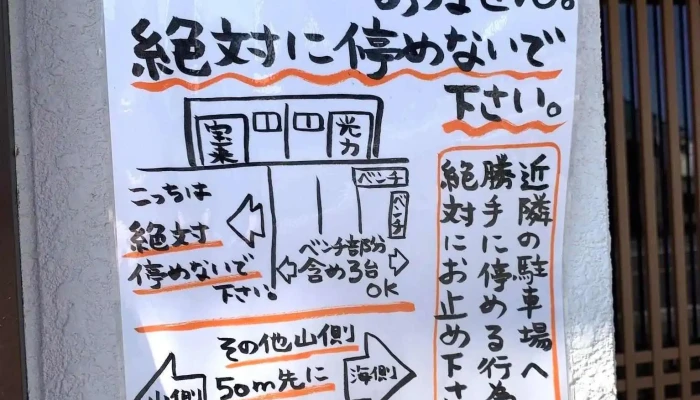 ありません。
絶対に停めないで
下さい。
宝来
光力
ベンチ
ベンチ
こっちは
絶対
停めないで
下さい。
ベンチ部分
含め3台
OK
近隣の駐車場へ
勝手に停める行為
絶対にお止め下さ
その他山側
50m先に
山側
海側